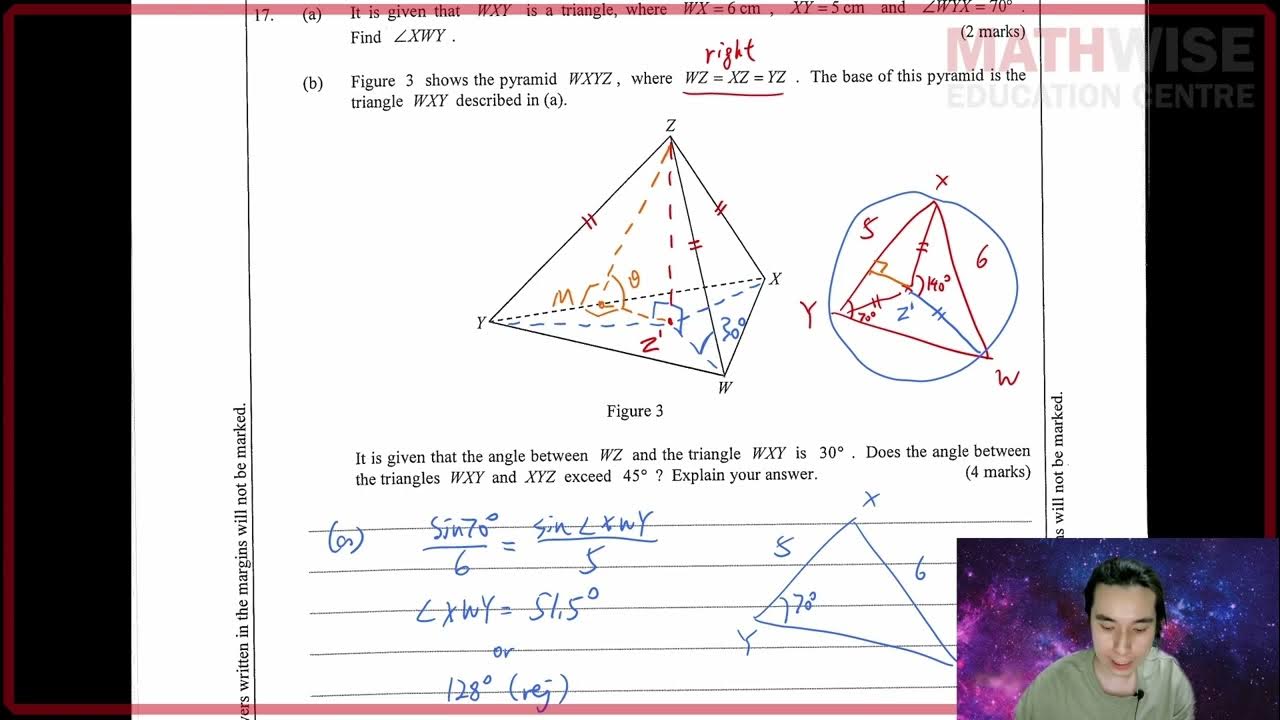 17. (a) It is given that WXY is a triangle, where WX = 6 cm , XY = 5 cm and ∠WYX = 70° .
Find ∠XWY . (2 marks)
MATHWISE
EDUCATION CENTRE
right
(b) Figure 3 shows the pyramid WXYZ , where WZ = XZ = YZ . The base of this pyramid is the
triangle WXY described in (a).
Z
X
Y
W
M
θ
Z'
30°
X
5
6
140°
Y
70°
Z'
W
Figure 3
It is given that the angle between WZ and the triangle WXY is 30° . Does the angle between
the triangles WXY and XYZ exceed 45° ? Explain your answer. (4 marks)
(a) sin70°/6 = sin∠XWY/5
∠XWY = 51.5°
or
128° (rej)
X
5
6
70°
Y
ers written in the margins will not be marked.
ns will not be marked.